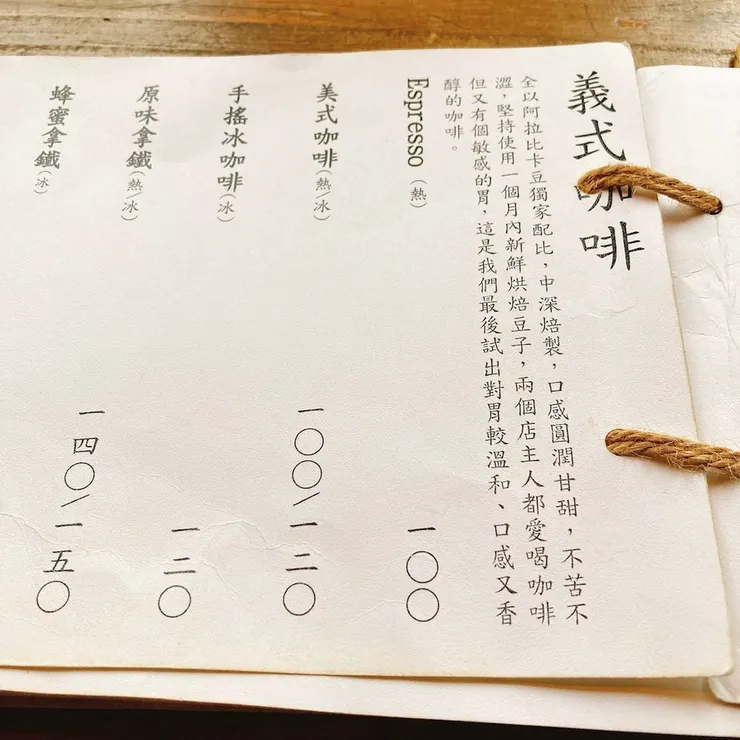 義式咖啡
全以阿拉比卡豆獨家配比，中深焙製，口感圓潤甘甜，不苦不
澀，堅持使用一個月內新鮮烘焙豆子，兩個店主人都愛喝咖啡
但又有個敏感的胃，這是我們最後試出對胃較溫和、口感又香
醇的咖啡。
Espresso（熱） 一〇〇
美式咖啡（熱/冰） 一〇〇/一二〇
手搖冰咖啡（冰） 一二〇
原味拿鐵（熱/冰） 一四〇/一五〇
蜂蜜拿鐵（冰）